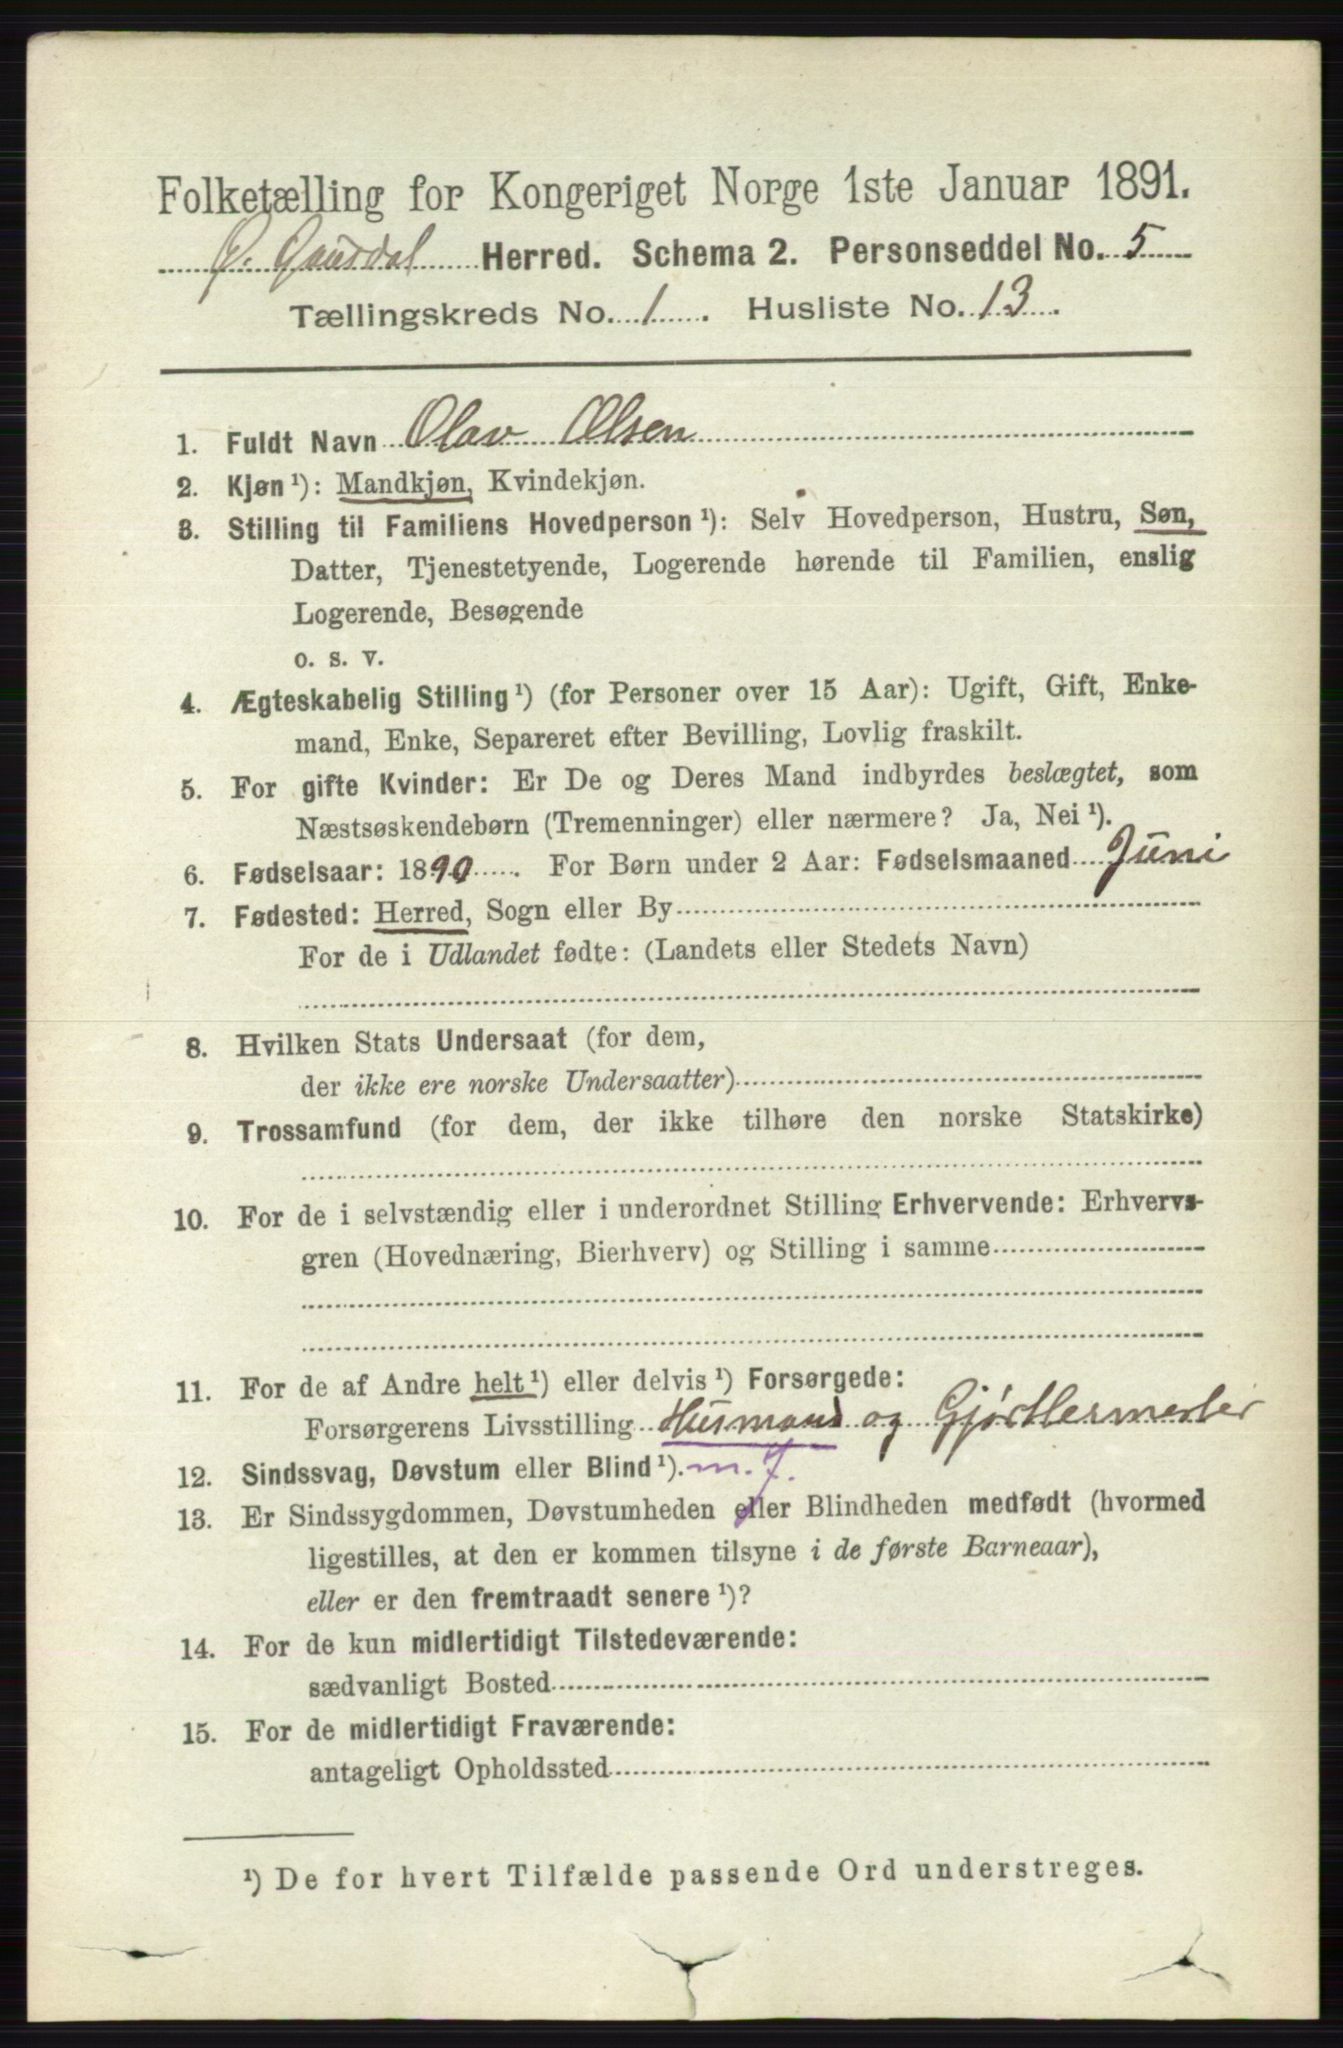 Folketælling for Kongeriget Norge 1ste Januar 1891.
Ø. Gausdal Herred. Schema 2. Personseddel No. 5
Tællingskreds No. 1. Husliste No. 13.
1. Fuldt Navn Olav Olsen
2. Kjøn ¹): Mandkjøn, Kvindekjøn.
3. Stilling til Familiens Hovedperson ¹): Selv Hovedperson, Hustru, Søn,
Datter, Tjenestetyende, Logerende hørende til Familien, enslig
Logerende, Besøgende
o. s. v.
4. Ægteskabelig Stilling ¹) (for Personer over 15 Aar): Ugift, Gift, Enke-
mand, Enke, Separeret efter Bevilling, Lovlig fraskilt.
5. For gifte Kvinder: Er De og Deres Mand indbyrdes beslægtet, som
Næstsøskendebørn (Tremenninger) eller nærmere? Ja, Nei ¹).
6. Fødselsaar: 1890. For Børn under 2 Aar: Fødselsmaaned Juni
7. Fødested: Herred, Sogn eller By
For de i Udlandet fødte: (Landets eller Stedets Navn)
8. Hvilken Stats Undersaat (for dem,
der ikke ere norske Undersaatter)
9. Trossamfund (for dem, der ikke tilhøre den norske Statskirke)
10. For de i selvstændig eller i underordnet Stilling Erhvervende: Erhvervs-
gren (Hovednæring, Bierhverv) og Stilling i samme
11. For de af Andre helt ¹) eller delvis ¹) Forsørgede:
Forsørgerens Livsstilling Husmand og Gjørtlermester
12. Sindssvag, Døvstum eller Blind ¹). m. J.
13. Er Sindssygdommen, Døvstumheden eller Blindheden medfødt (hvormed
ligestilles, at den er kommen tilsyne i de første Barneaar),
eller er den fremtraadt senere ¹)?
14. For de kun midlertidigt Tilstedeværende:
sædvanligt Bosted
15. For de midlertidigt Fraværende:
antageligt Opholdssted
¹) De for hvert Tilfælde passende Ord understreges.